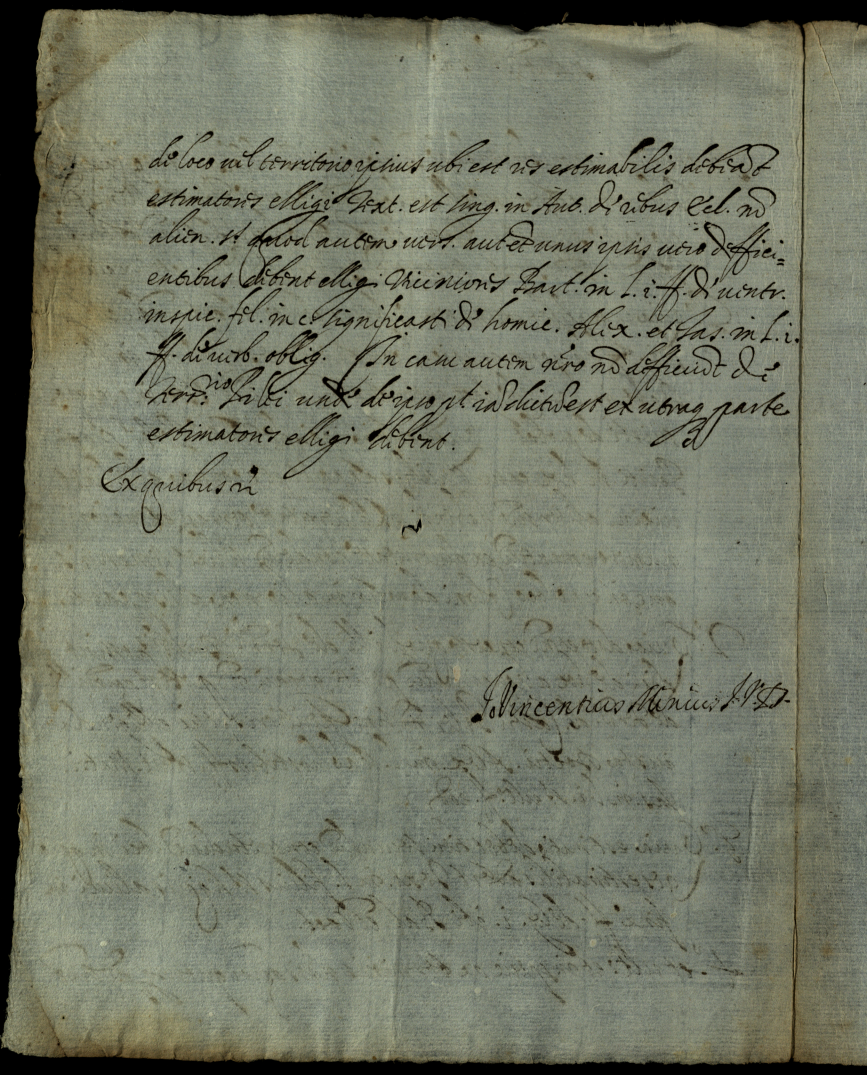 de loco vel territorio ipsius ubi est res estimabilis debeãt
estimatores elligi Text. est sing. in Aut. de rebus Eccl. nõ
alien. §. quod autem vers. aut et unus ipsis vero deffici=
entibus debent elligi viciniores Bart. in l. i. ff. de ventr.
inspic. fel. in c. significasti de homic. Alex. et Jas. in l. i.
ff. de verb. oblig. In casu autem nr̃o nõ defficiũt de
unde de ipso est ex utraq parte
estimatores elligi debent.
Ex quibus
Jo Vincentius Minius J. V. D.